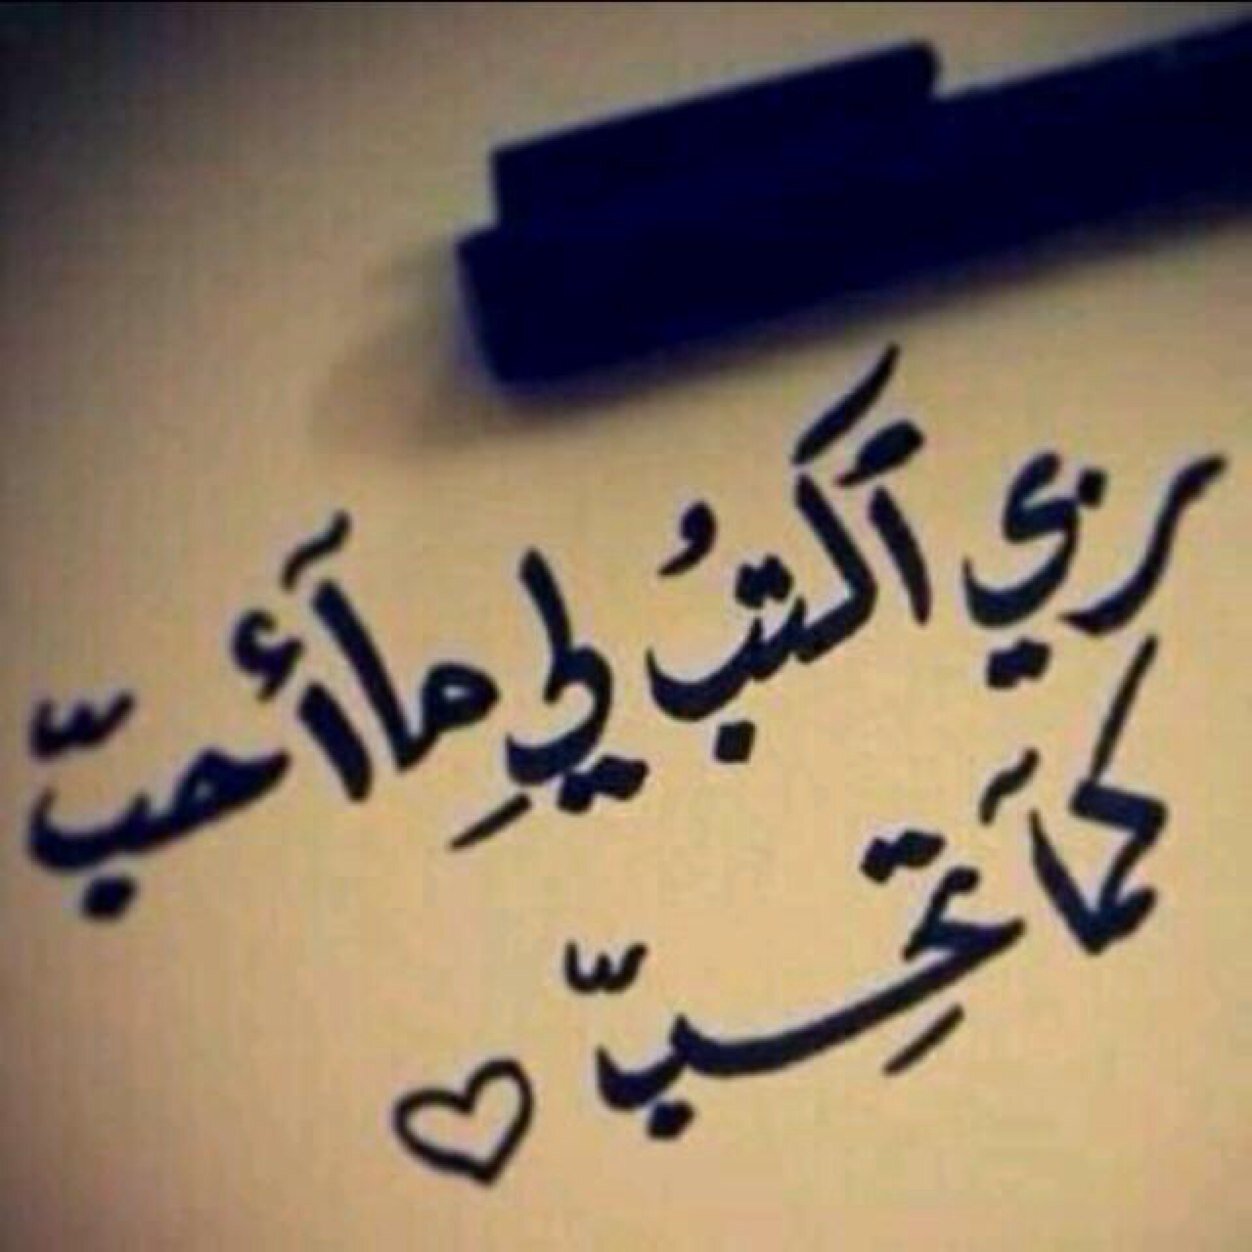 ربي أُكتبُ لِي مآ أحبّ
كمآ تحِبّ